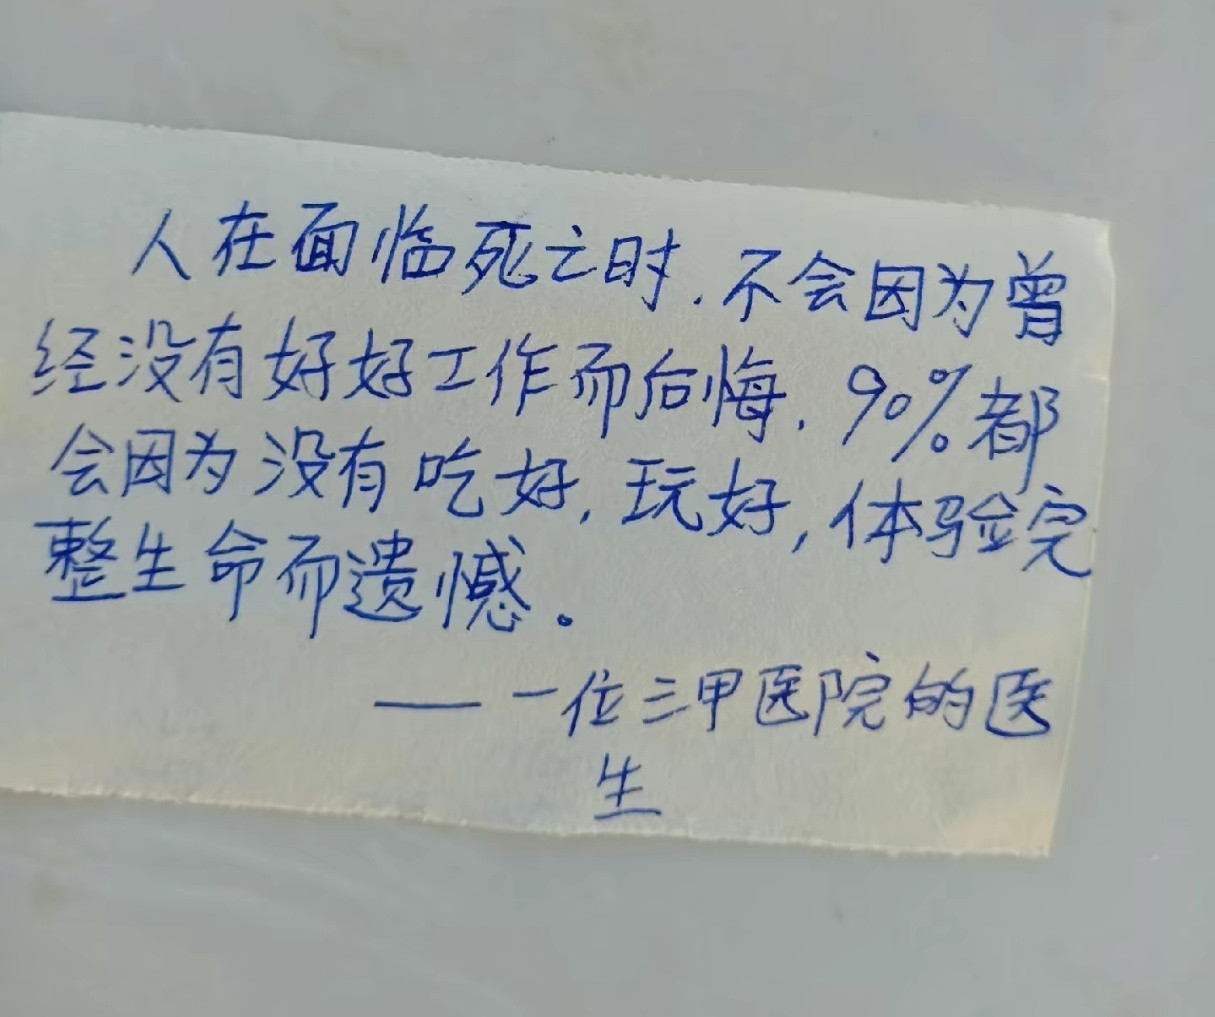 人在面临死亡时.不会因为曾
经没有好好工作而后悔.90%都
会因为没有吃好,玩好,体验完
整生命而遗憾。
——一位三甲医院的医
生